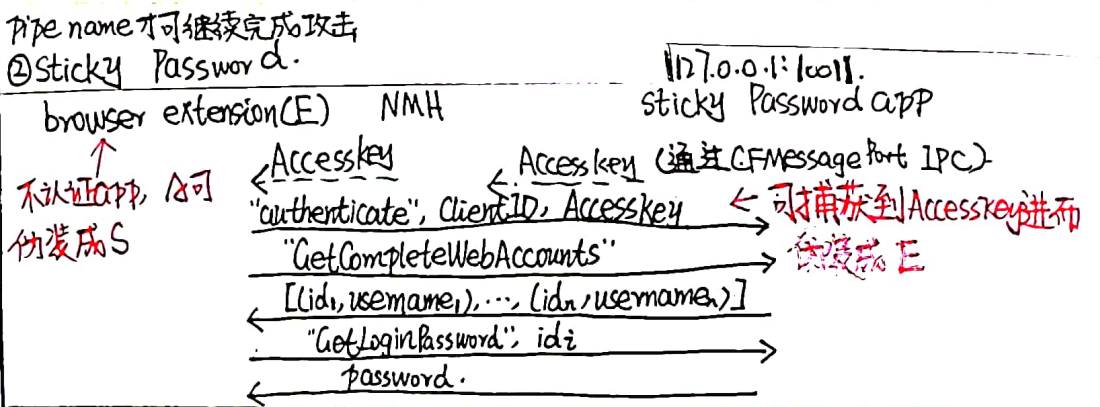 pipe name才可继续完成攻击
②Sticky Password.
127.0.0.1:10011.
browser extension(E) NMH Sticky Password app
Accesskey Access key (通过CFMessagePort IPC)
不认证app, A可
伪装成S
"authenticate", ClientID, Accesskey
可捕获到Accesskey进而
伪装成E
"GetCompleteWebAccounts"
[(id₁,username₁),…, (idn,usernamen)]
"GetLoginPassword", idi
password.